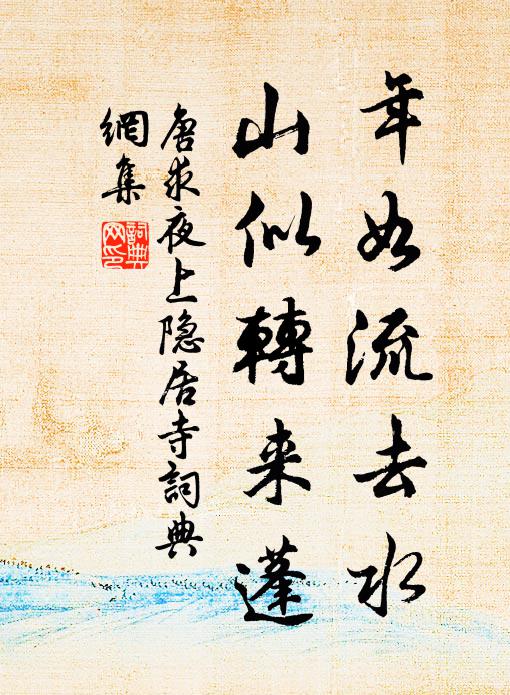 年如流去水
山似轉来蓬
唐求夜上隐居寺詞典
網集
詞典
网印